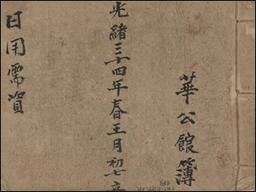 華公館簿
光緒三十四年春王月初七立
日用需資